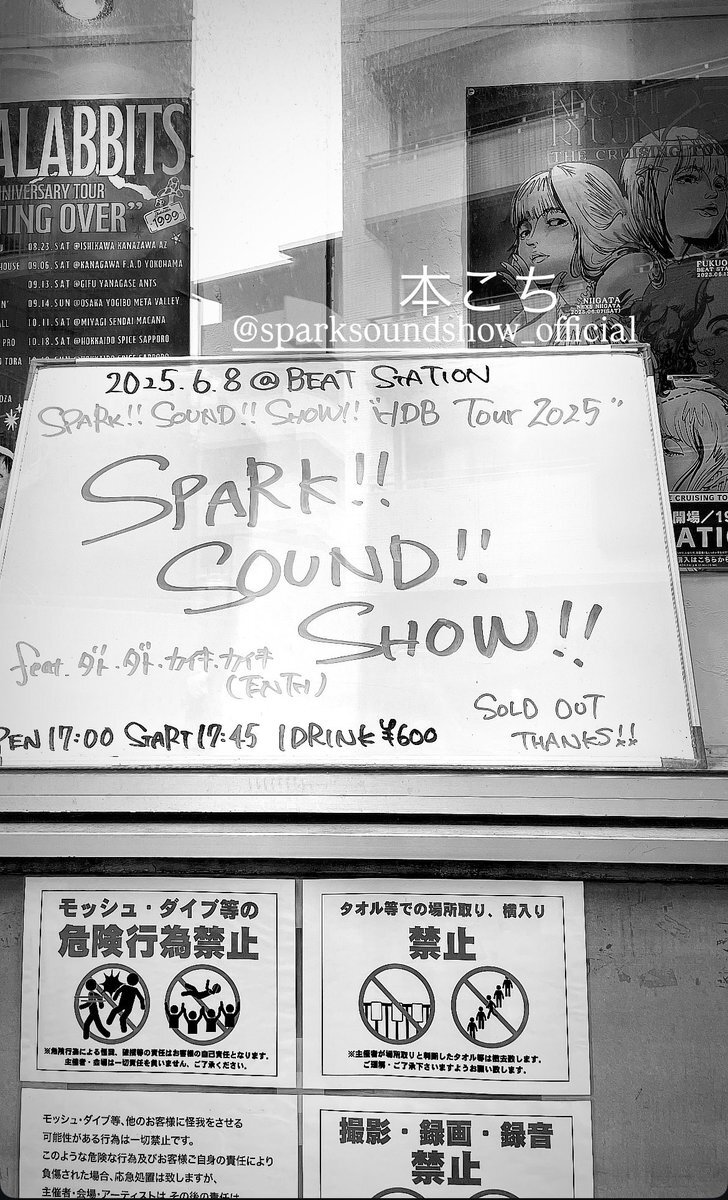 ALABBITS
NIVERSARY TOUR
TING OVER”
1999
08.23.SAT @ISHIKAWA KANAZAWA AZ
HOUSE 09.06.SAT @KANAGAWA F.A.D YOKOHAMA
09.13.SAT @GIFU YANAGASE ANTS
09.14.SUN @OSAKA YOGIBO META VALLEY
10.11.SAT @MIYAGI SENDAI MACANA
PRO 10.18.SAT @HOKKAIDO SPICE SAPPORO
TORA
RYUJIN
THE CRUISING TOU
FUKUO
BEAT STA
NIIGATA
本こち
@sparksoundshow_official
2025.6.8 @ BEAT STATION
SPARK!! SOUND!! SHOW!! “HDB Tour 2025”
SPARK!!
SOUND!!
SHOW!!
feat. ダト・ダト・カイキ・カイキ
(ENTH)
PEN 17:00 START 17:45 1DRINK ¥600
SOLD OUT
THANKS!!
E CRUISING TO
開場/19
ATIO
モッシュ・ダイブ等の
危険行為禁止
※危険行為による怪我、破損等の責任はお客様の自己責任となります。
主催者・会場は一切責任を負いません、ご了承ください。
タオル等での場所取り、横入り
禁止
※主催者が場所取りと判断したタオル等は撤去致します。
ご理解・ご了承下さいますようお願い致します。
モッシュ・ダイブ等、他のお客様に怪我をさせる
可能性がある行為は一切禁止です。
このような危険な行為及びお客様ご自身の責任により
負傷された場合、応急処置は致しますが、
主催者・会場・アーティストは その後の責任は
撮影・録画・録音
禁止